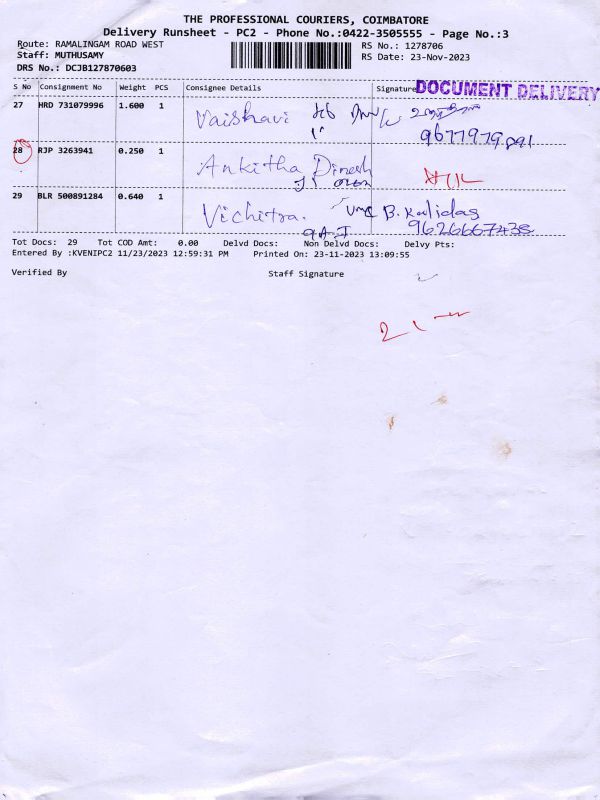 THE PROFESSIONAL COURIERS, COIMBATORE
Delivery Runsheet - PC2 - Phone No.:0422-3505555 - Page No.:3
Route: RAMALINGAM ROAD WEST
Staff: MUTHUSAMY
DRS No.: DCJB127870603
RS No.: 1278706
RS Date: 23-Nov-2023
S No Consignment No Weight PCS Consignee Details Signature
DOCUMENT DELIVERY
27 HRD 731079996 1.600 1 Vaishavi
9677979891
28 RJP 3263941 0.250 1 Ankitha Dinesh
29 BLR 500891284 0.640 1 Vichitra. B. Kalidas
9626667438
Tot Docs: 29 Tot COD Amt: 0.00 Delvd Docs: Non Delvd Docs: Delvy Pts:
Entered By :KVENIPC2 11/23/2023 12:59:31 PM Printed On: 23-11-2023 13:09:55
Verified By Staff Signature